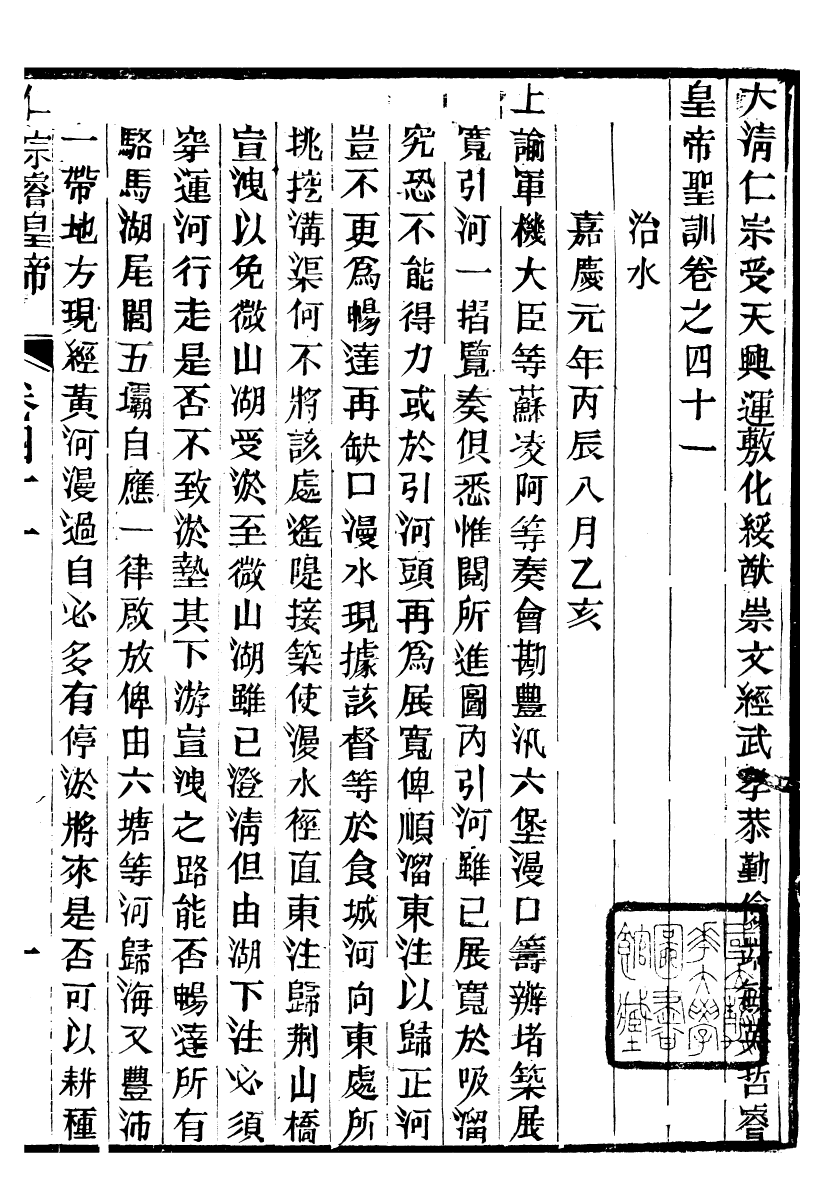 大淸仁宗受天興運敷化綏猷崇文經武孝恭勤儉端敏英哲睿
皇帝聖訓卷之四十一
治水
嘉慶元年丙辰八月乙亥
上諭軍機大臣等蘇凌阿等奏會勘豐汛六堡漫口籌辦堵築展
寬引河一摺覽奏俱悉惟閱所進圖內引河雖已展寬於吸溜
究恐不能得力或於引河頭再爲展寬俾順溜東注以歸正河
豈不更爲暢達再缺口漫水現據該督等於食城河向東處所
挑挖溝渠何不將該處遙隄接築使漫水徑直東注歸荆山橋
宣洩以免微山湖受淤至微山湖雖已澄淸但由湖下注必須
穿運河行走是否不致淤墊其下游宣洩之路能否暢達所有
駱馬湖尾閭五壩自應一律啟放俾由六塘等河歸海又豐沛
一帶地方現經黃河漫過自必多有停淤將來是否可以耕種
仁宗睿皇帝
卷四十一
一
國立清華大學圖書館藏